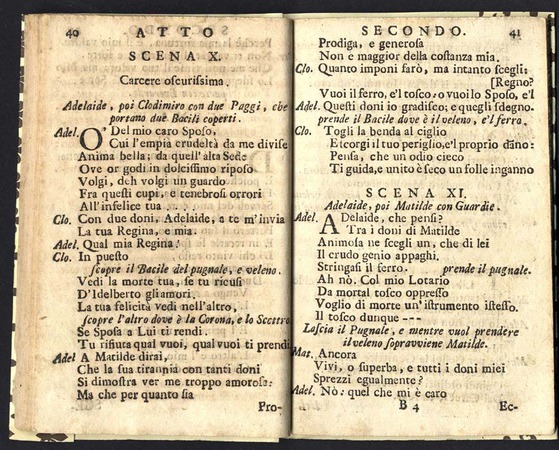 40
ATTO
SCENA X.
Carcere oscurissima.
Adelaide, poi Clodimiro con due Paggi, che
portano due Bacili coperti.
Adel. O' Del mio caro Sposo,
Cui l'empia crudeltà da me divise
Anima bella; da quell'alta Sede
Ove or godi in dolcissimo riposo
Volgi, deh volgi un guardo
Fra questi cupi, e tenebrosi orrori
All'infelice tua . . . .
Clo. Con due doni, Adelaide, a te m'invia
La tua Regina, e mia.
Adel. Qual mia Regina?
Clo. In questo
scopre il Bacile del pugnale, e veleno.
Vedi la morte tua, se tu ricusi
D'Idelberto gli amori.
La tua felicità vedi nell'altro,
scopre l'altro dove è la Corona, e lo Scettro
Se Sposa a Lui ti rendi.
Tu rifiuta qual vuoi, qual vuoi ti prendi
Adel A Matilde dirai,
Che la sua tirannia con tanti doni
Si dimostra ver me troppo amorosa:
Ma che per quanto sia
Pro-
SECONDO.
41
Prodiga, e generosa
Non è maggior della costanza mia.
Clo. Quanto imponi farò, ma intanto scegli:
[Regno?
Vuoi il ferro, e'l tosco, o vuoi lo Sposo, e'l
Adel. Questi doni io gradisco; e quegli sdegno.
prende il Bacile dove è il veleno, e'l ferro.
Clo. Togli la benda al ciglio
E scorgi il tuo periglio, e'l proprio dano:
Pensa, che un odio cieco
Ti guida, e unito è seco un folle inganno
SCENA XI.
Adelaide, poi Matilde con Guardie.
Adel. ADelaide, che pensi?
Tra i doni di Matilde
Animosa ne scegli un, che di lei
Il crudo genio appaghi.
Stringasi il ferro. prende il pugnale.
Ah nò. Col mio Lotario
Da mortal tosco oppresso
Voglio di morte un' istrumento istesso.
Il tosco dunque ---
Lascia il Pugnale, e mentre vuol prendere
il veleno sopravviene Matilde.
Mat. Ancora
Vivi, o superba, e tutti i doni miei
Sprezzi egualmente?
Adel. Nò: quel che mi è caro
B 4
Ec-